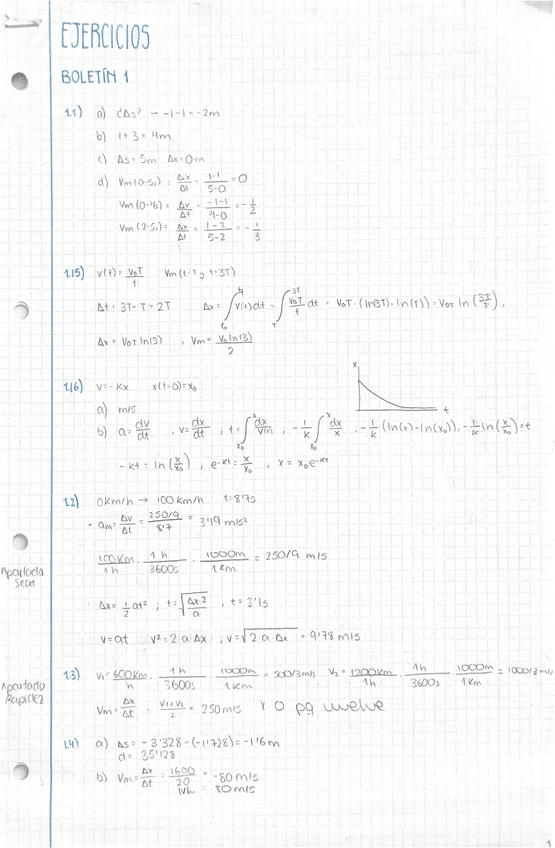 EJERCICIOS
BOLETÍN 1
1.1) a) ¿Δs? → -1-1=-2m
b) 1+3=4m
c) Δs=5m Δx=0m
d) Vm(0-5s) = Δx/Δt = 1-1/5-0 = 0
Vm(0-4s) = Δx/Δt = -1-1/4-0 = -1/2
Vm(2-5s) = Δx/Δt = 1-2/5-2 = -1/3
1.15) v(t) = V₀T/t Vm(t=T y t=3T)
Δt = 3T-T = 2T Δx = ∫ v(t)dt = ∫ V₀T/t dt = V₀T·(ln(3T)-ln(T)) = V₀T ln(3T/T),
Δx = V₀T ln(3) , Vm = V₀ ln(3)/2
1.16) v=-kx x(t=0)=x₀
x
t
a) m/s
b) a=dv/dt , v=dx/dt , t=∫ dx/v(x) , -1/k ∫ dx/x , -1/k (ln(x)-ln(x₀)), -1/k ln(x/x₀)=t
-kt = ln(x/x₀) , e^-kt = x/x₀ , x = x₀e^-kt
1.2) 0km/h → 100km/h t=8'7s
• am = Δv/Δt = 250/9/8'7 = 3'19 m/s²
100km/1h · 1h/3600s · 1000m/1km = 250/9 m/s
Apartado
• Δx = 1/2 at² ; t=√Δx·2/a , t=3'1s
v=at v²=2·a·Δx ; v=√2·a·Δx = 9'78 m/s
1.3) V₁=600km/h · 1h/3600s · 1000m/1km = 500/3 m/s V₂=1200km/1h · 1h/3600s · 1000m/1km = 1000/3 m/s
Apartado
Rapidez
Vm = Δx/Δt = V₁+V₂/2 = 250m/s Y 0 pq vuelve
1.4) a) Δs = -3'328-(-1'728)=-1'6m
d= 35'128
b) Vm=Δx/Δt = 1600/20 = -80 m/s
= 80 m/s
1